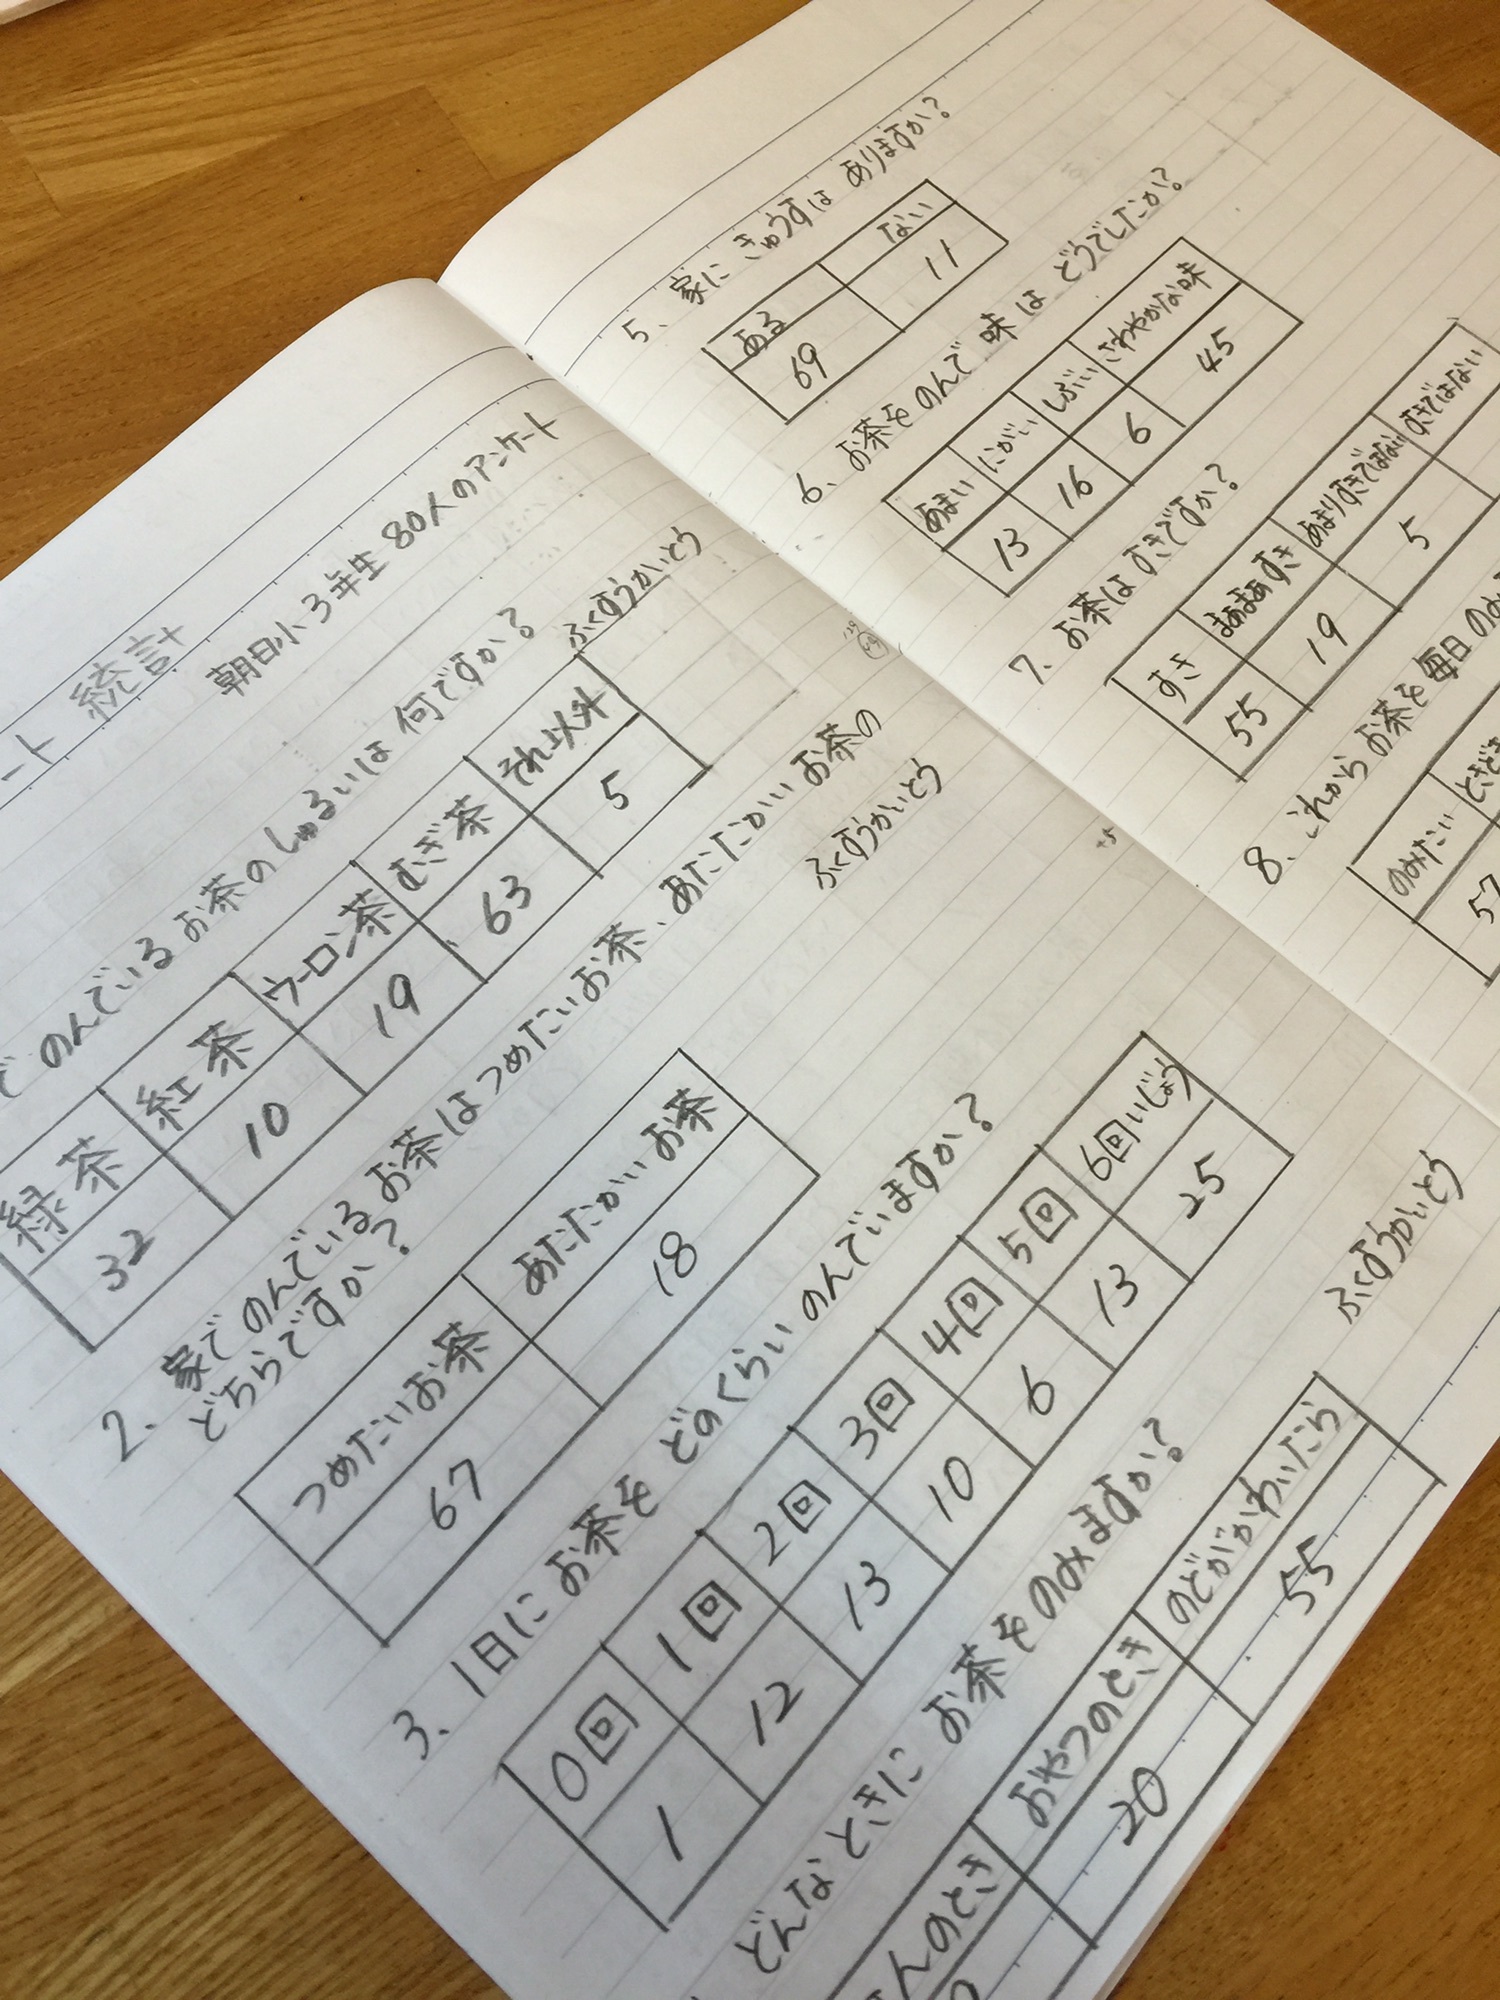 ート 統計
朝日小3年生 80人のアンケート
で のんでいる お茶の しゅるいは 何ですか?
ふくすうかいとう
緑茶 紅茶 ウーロン茶 むぎ茶 それ以外
32 10 19 63 5
2、家で のんでいる お茶は つめたいお茶、あたたかい お茶の
どちらですか?
ふくすうかいとう
つめたいお茶 あたたかい お茶
67 18
3、1日に お茶を どのくらい のんでいますか?
0回 1回 2回 3回 4回 5回 6回いじょう
1 12 13 10 6 13 25
どんな ときに お茶を のみますか?
ふくすうかいとう
んのとき おやつのとき のどがかわいたら
20 55
5、家に きゅうすは ありますか?
ある ない
69 11
6、お茶を のんで 味は どうでしたか?
あまい にがい しぶい さわやかな味
13 16 6 45
7、お茶は すきですか?
すき まあまあすき あまりすきではない すきではない
55 19 5
8、これから お茶を 毎日 のみ
のみたい ときどき
57